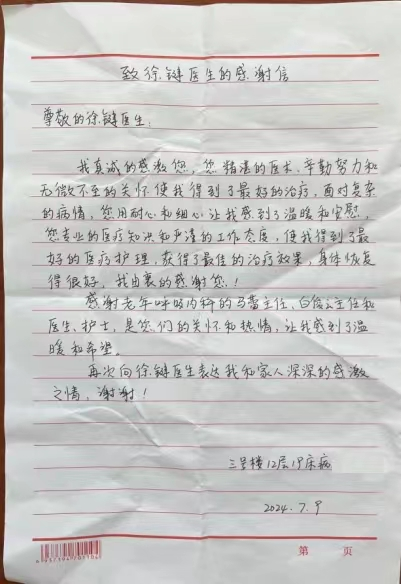 致徐键医生的感谢信
尊敬的徐键医生:
我真诚的感激您,您精湛的医术、辛勤努力和
无微不至的关怀使我得到了最好的治疗,面对复杂
的病情,您用耐心和细心让我感到了温暖和安慰,
您专业的医疗知识和严谨的工作态度,使我得到了最
好的医疗护理,获得了最佳的治疗效果,身体恢复
得很好,我由衷的感谢您!
感谢老年呼吸内科的马蕾主任、白俊云主任和
医生、护士,是您们的关怀和热情,让我感到了温
暖和希望。
再次向徐键医生表达我和家人深深的感激
之情,谢谢!
三号楼12层19床病
2024.7.9
第 页